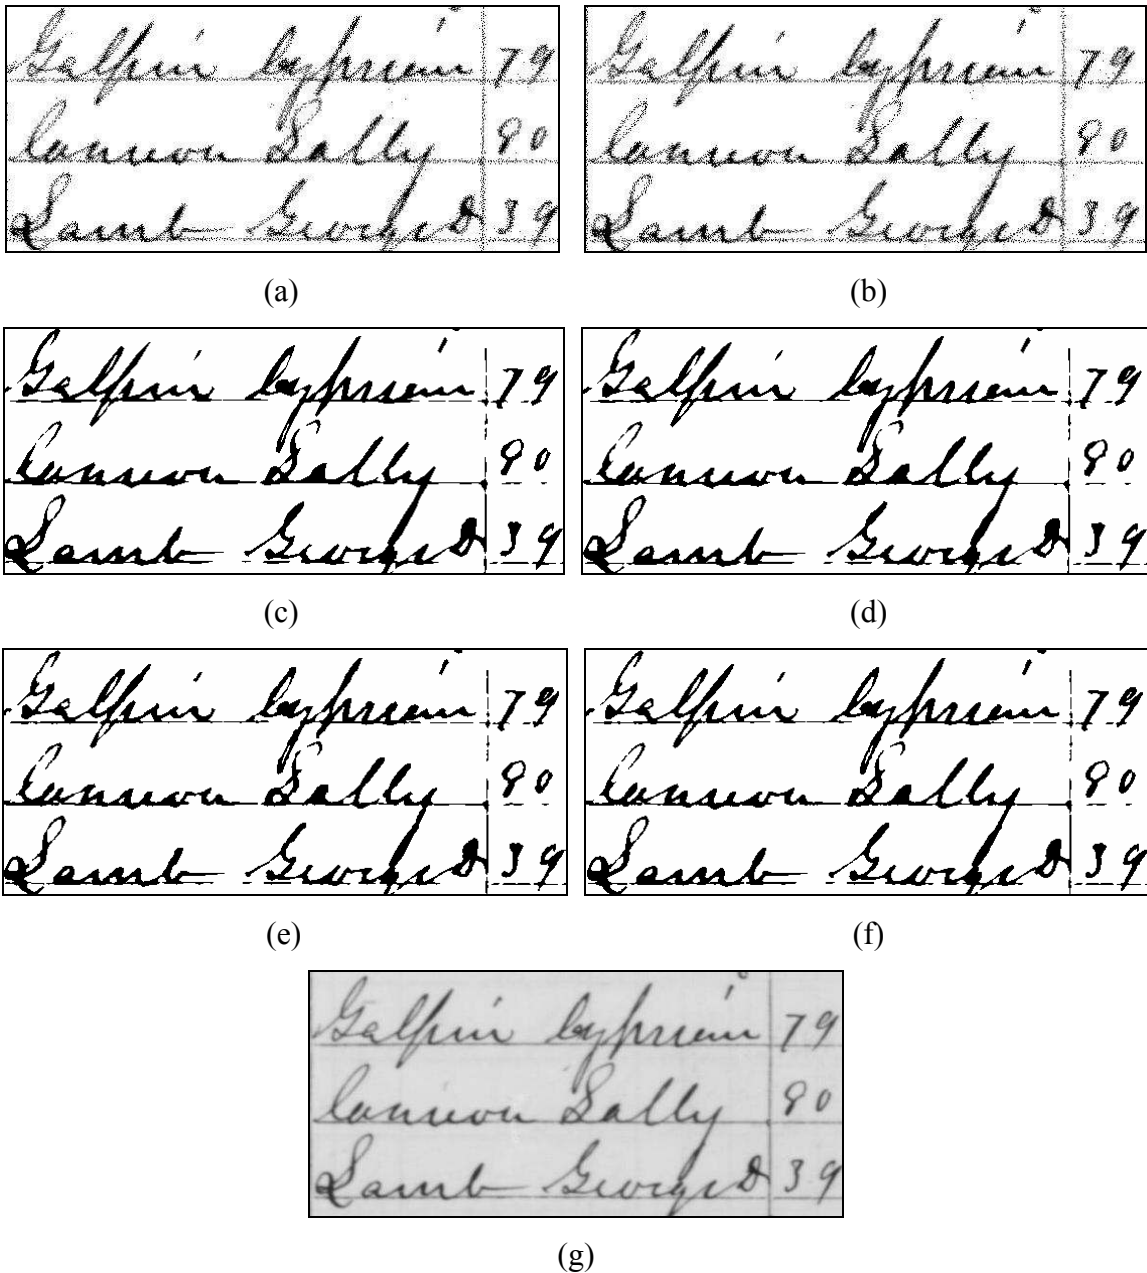 Galpin Cyprian 79
Cannon Sally 90
Lamb George D 39
Galpin Cyprian 79
Cannon Sally 90
Lamb George D 39
(a) (b)
Galpin Cyprian 79
Cannon Sally 90
Lamb George D 39
Galpin Cyprian 79
Cannon Sally 90
Lamb George D 39
(c) (d)
Galpin Cyprian 79
Cannon Sally 90
Lamb George D 39
Galpin Cyprian 79
Cannon Sally 90
Lamb George D 39
(e) (f)
Galpin Cyprian 79
Cannon Sally 90
Lamb George D 39
(g)